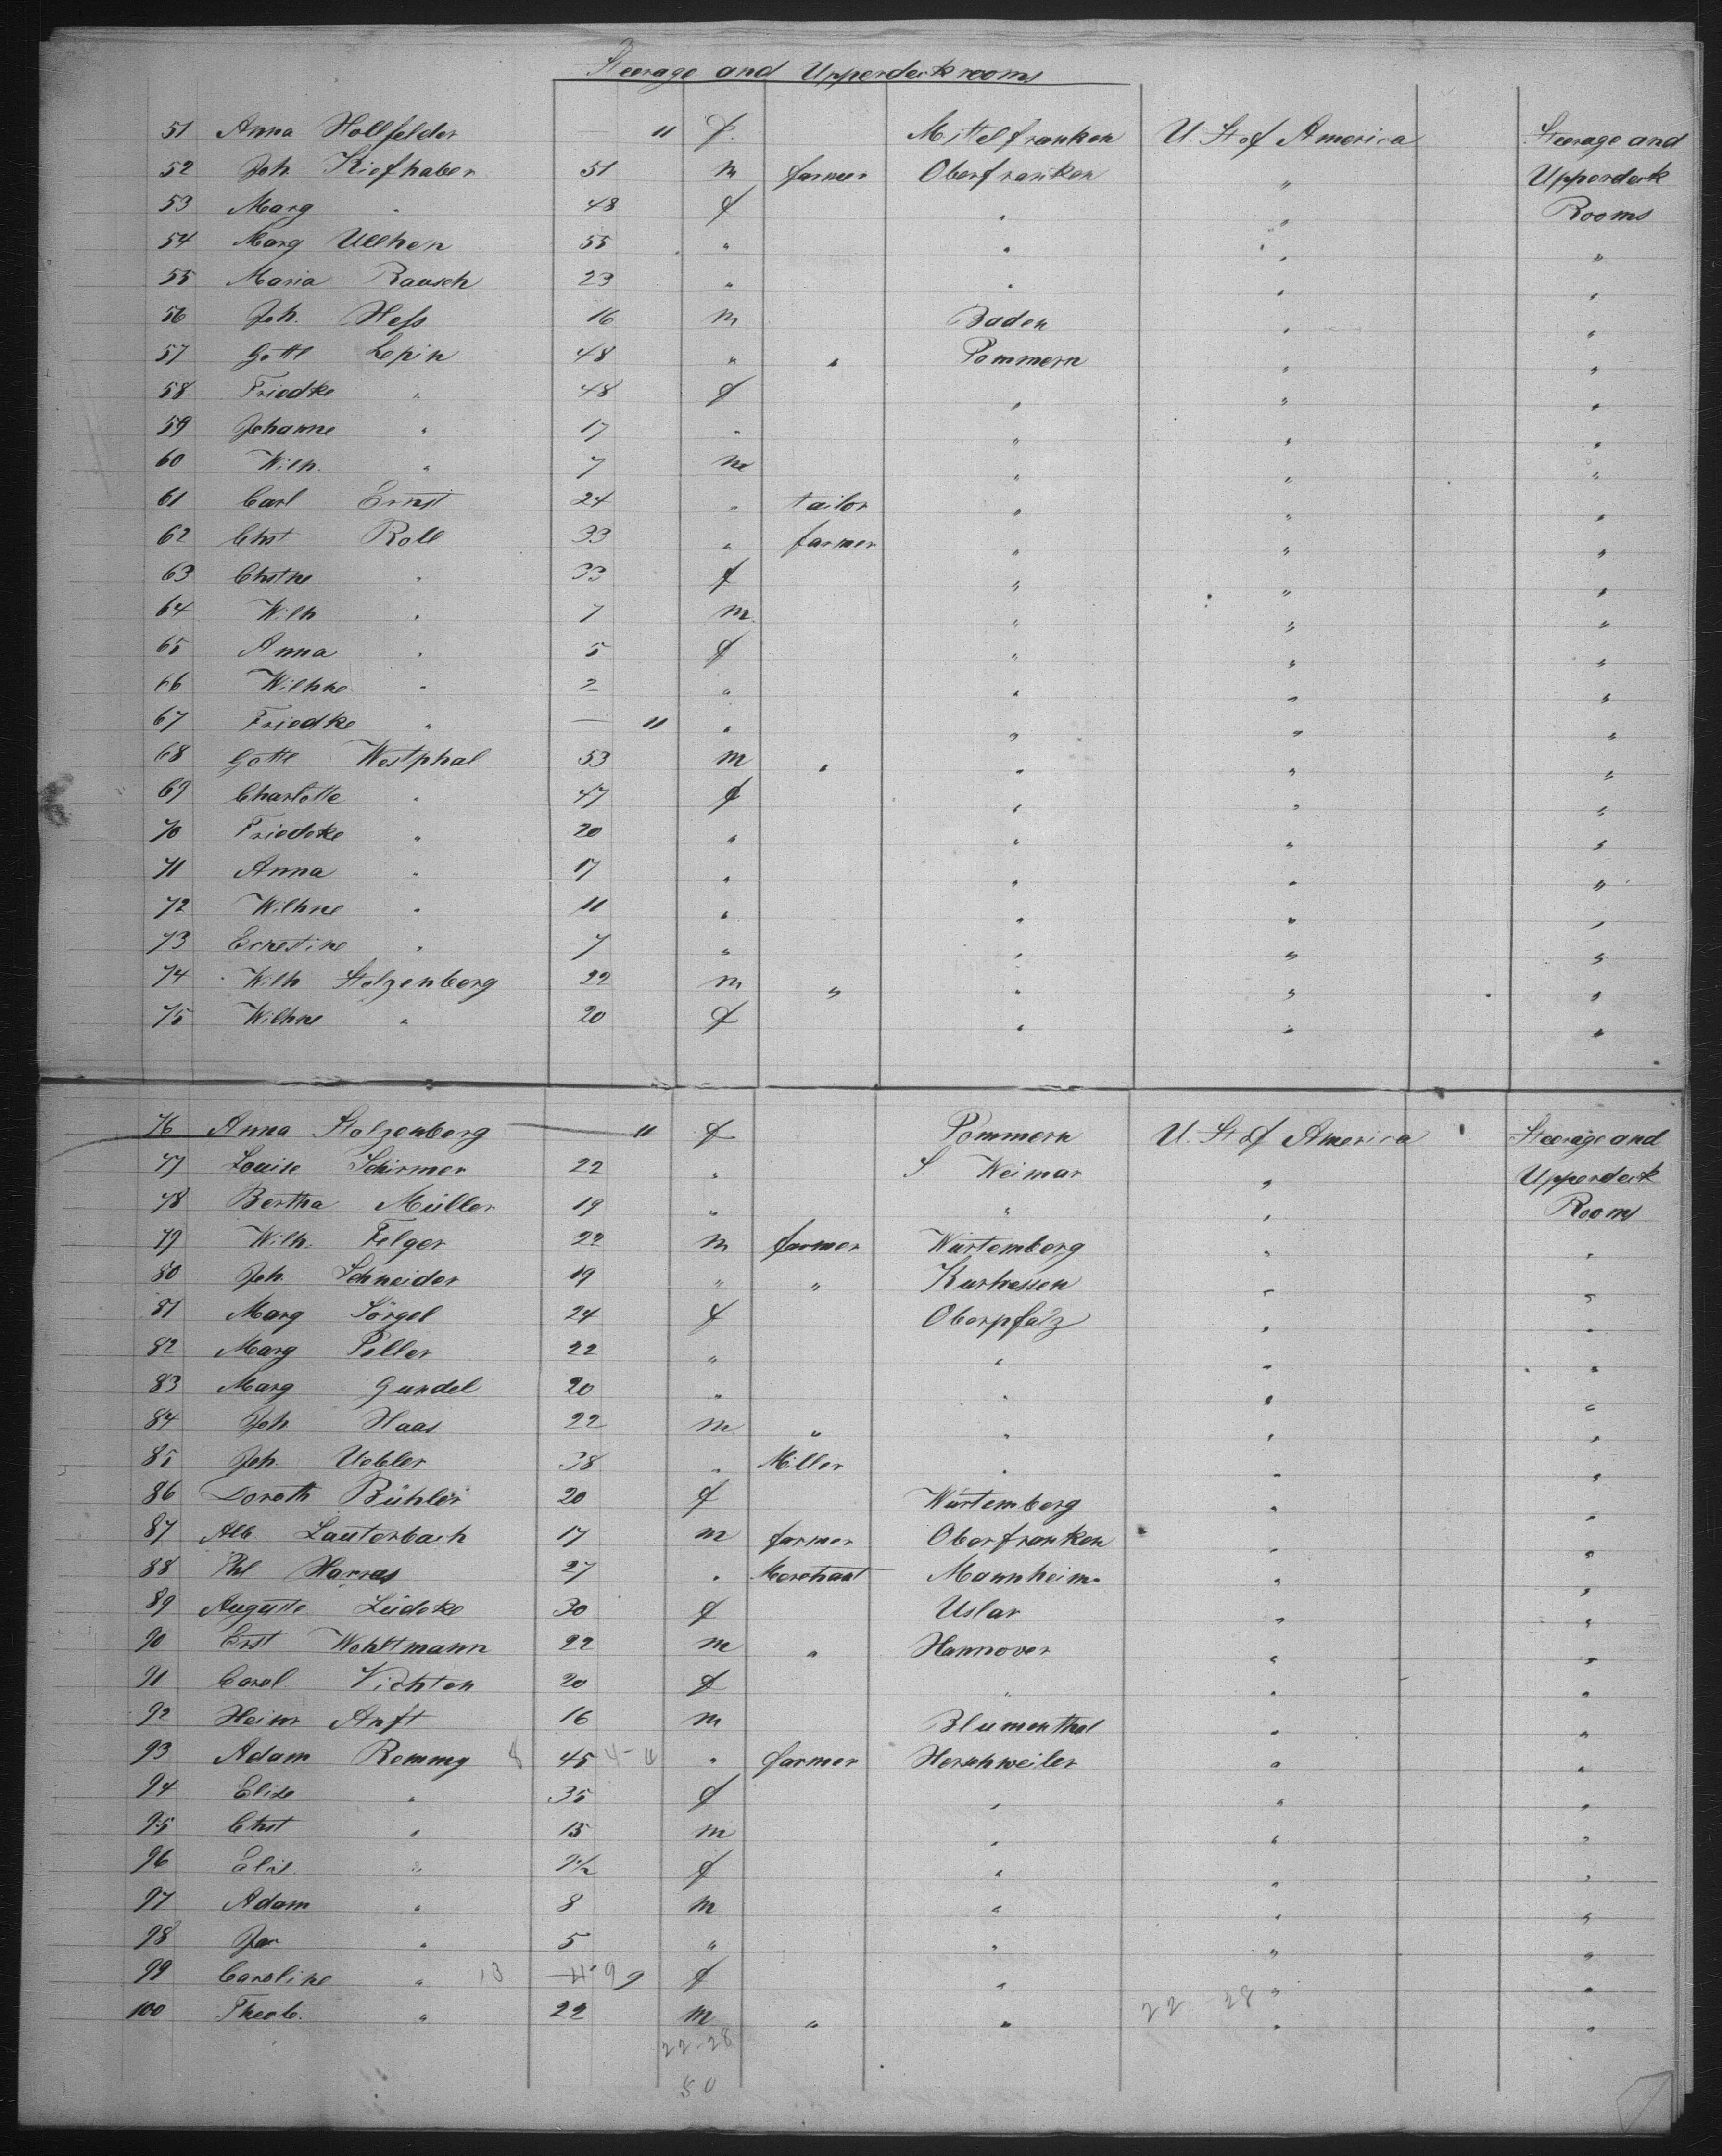 Steerage and Upperdeck rooms
51 Anna Hollfelder — 11 f. Mittelfranken U. St of America Steerage and
52 Joh Kiefhaber 51 m farmer Oberfranken " Upperdeck
53 Marg " 48 f " " Rooms
54 Marg Ullhen 55 " " " "
55 Maria Raausch 23 " " " "
56 Joh. Heſs 16 m Baden " "
57 Gottl Lepin 48 " " Pommern " "
58 Friedke " 48 f " " "
59 Johanne " 17 " " " "
60 Wilh. " 7 m " " "
61 Carl Ernst 24 " tailor " " "
62 Chst Roll 33 " farmer " " "
63 Chstne " 33 f " " "
64 Wilh " 7 m " " "
65 Anna " 5 f " " "
66 Wilhne " 2 " " " "
67 Friedke " — 11 " " " "
68 Gottl Westphal 53 m " " " "
69 Charlotte " 47 f " " "
70 Friedke " 20 " " " "
71 Anna " 17 " " " "
72 Wilhne " 11 " " " "
73 Ernestine " 7 " " " "
74 Wilh Stolzenberg 22 m " " " "
75 Wilhne " 20 f " " "
76 Anna Stolzenberg — 11 f Pommern U. St of America Steerage and
77 Louise Schirmer 22 " S. Weimar " Upperdeck
78 Bertha Müller 19 " " " Rooms
79 Wilh. Felger 22 m farmer Würtemberg " "
80 Joh. Schneider 19 " " Kurhessen " "
81 Marg Sörgel 24 f Oberpfalz " "
82 Marg Peller 22 " " " "
83 Marg Gundel 20 " " " "
84 Joh Haas 22 m " " " "
85 Joh. Uebler 38 " Miller " " "
86 Doroth Bühler 20 f Würtemberg " "
87 Alb Lauterbach 17 m farmer Oberfranken " "
88 Phl Harras 27 " Merchant Mannheim " "
89 Auguste Lüdeke 30 f Uslar " "
90 Erst Wehltmann 22 m " Hannover " "
91 Carol Vichten 20 f " " "
92 Heinr Anft 16 m Blumenthal " "
93 Adam Remmy 8 45 " farmer Herschweiler " "
94 Elise " 35 f " " "
95 Chst " 15 m " " "
96 Elis. " 9½ f " " "
97 Adam " 8 m " " "
98 " 5 " " " "
99 Caroline " 13 9 f " " "
100 Theob. " 22 m " " 22-28 " "
22-28
50